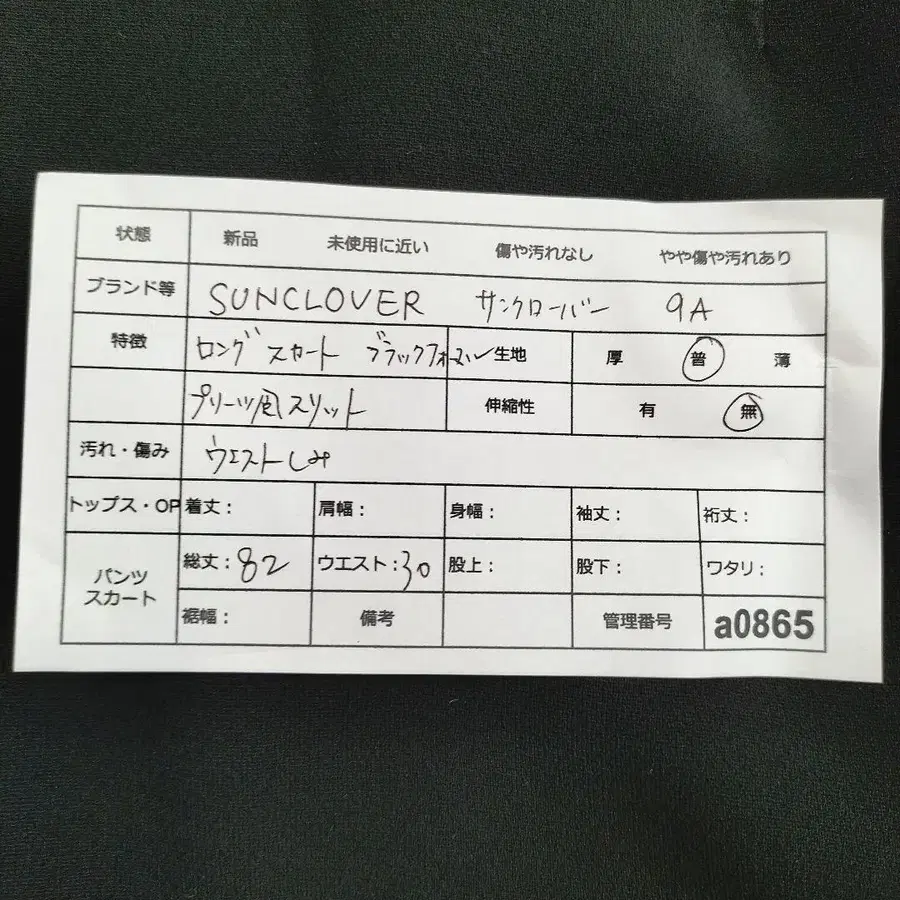 状態 新品 未使用に近い 傷や汚れなし やや傷や汚れあり
ブランド等 SUNCLOVER サンクローバー 9A
特徴 ロングスカート ブラックフォーマル 生地 厚 普 薄
プリーツ風スリット 伸縮性 有 無
汚れ・傷み ウエストしみ
トップス・OP 着丈: 肩幅: 身幅: 袖丈: 裄丈:
パンツ スカート 総丈:82 ウエスト:30 股上: 股下: ワタリ:
裾幅: 備考 管理番号 a0865